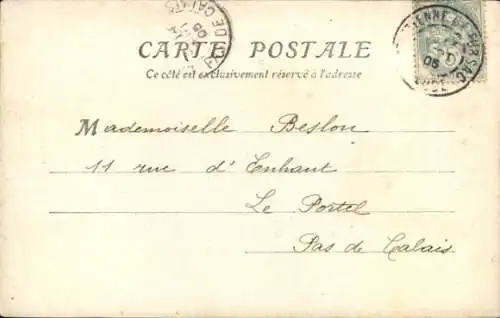 DE CALAIS
05
CARTE POSTALE
Ce côté est exclusivement réservé à l'adresse
05
Mademoiselle Beslon
11 rue d'Enhaut
Le Portel
Pas de Calais